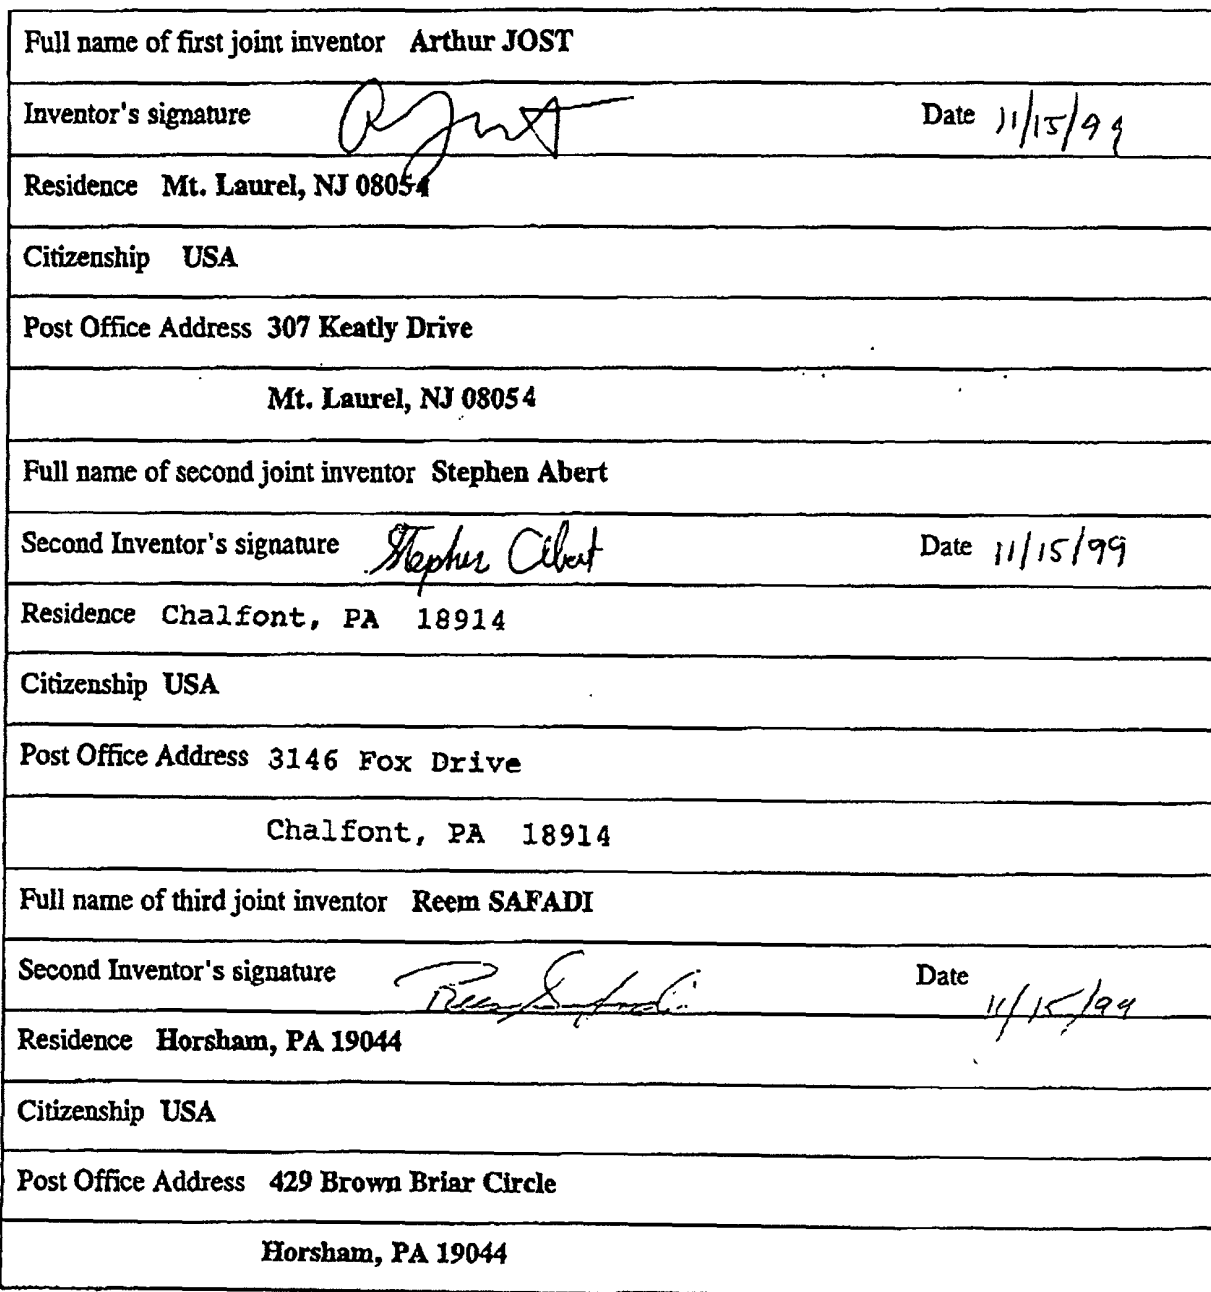 Full name of first joint inventor Arthur JOST
Inventor's signature A Jost Date 11/15/99
Residence Mt. Laurel, NJ 08054
Citizenship USA
Post Office Address 307 Keatly Drive
Mt. Laurel, NJ 08054
Full name of second joint inventor Stephen Abert
Second Inventor's signature Stephen Abert Date 11/15/99
Residence Chalfont, PA 18914
Citizenship USA
Post Office Address 3146 Fox Drive
Chalfont, PA 18914
Full name of third joint inventor Reem SAFADI
Second Inventor's signature Reem Safadi Date 11/15/99
Residence Horsham, PA 19044
Citizenship USA
Post Office Address 429 Brown Briar Circle
Horsham, PA 19044